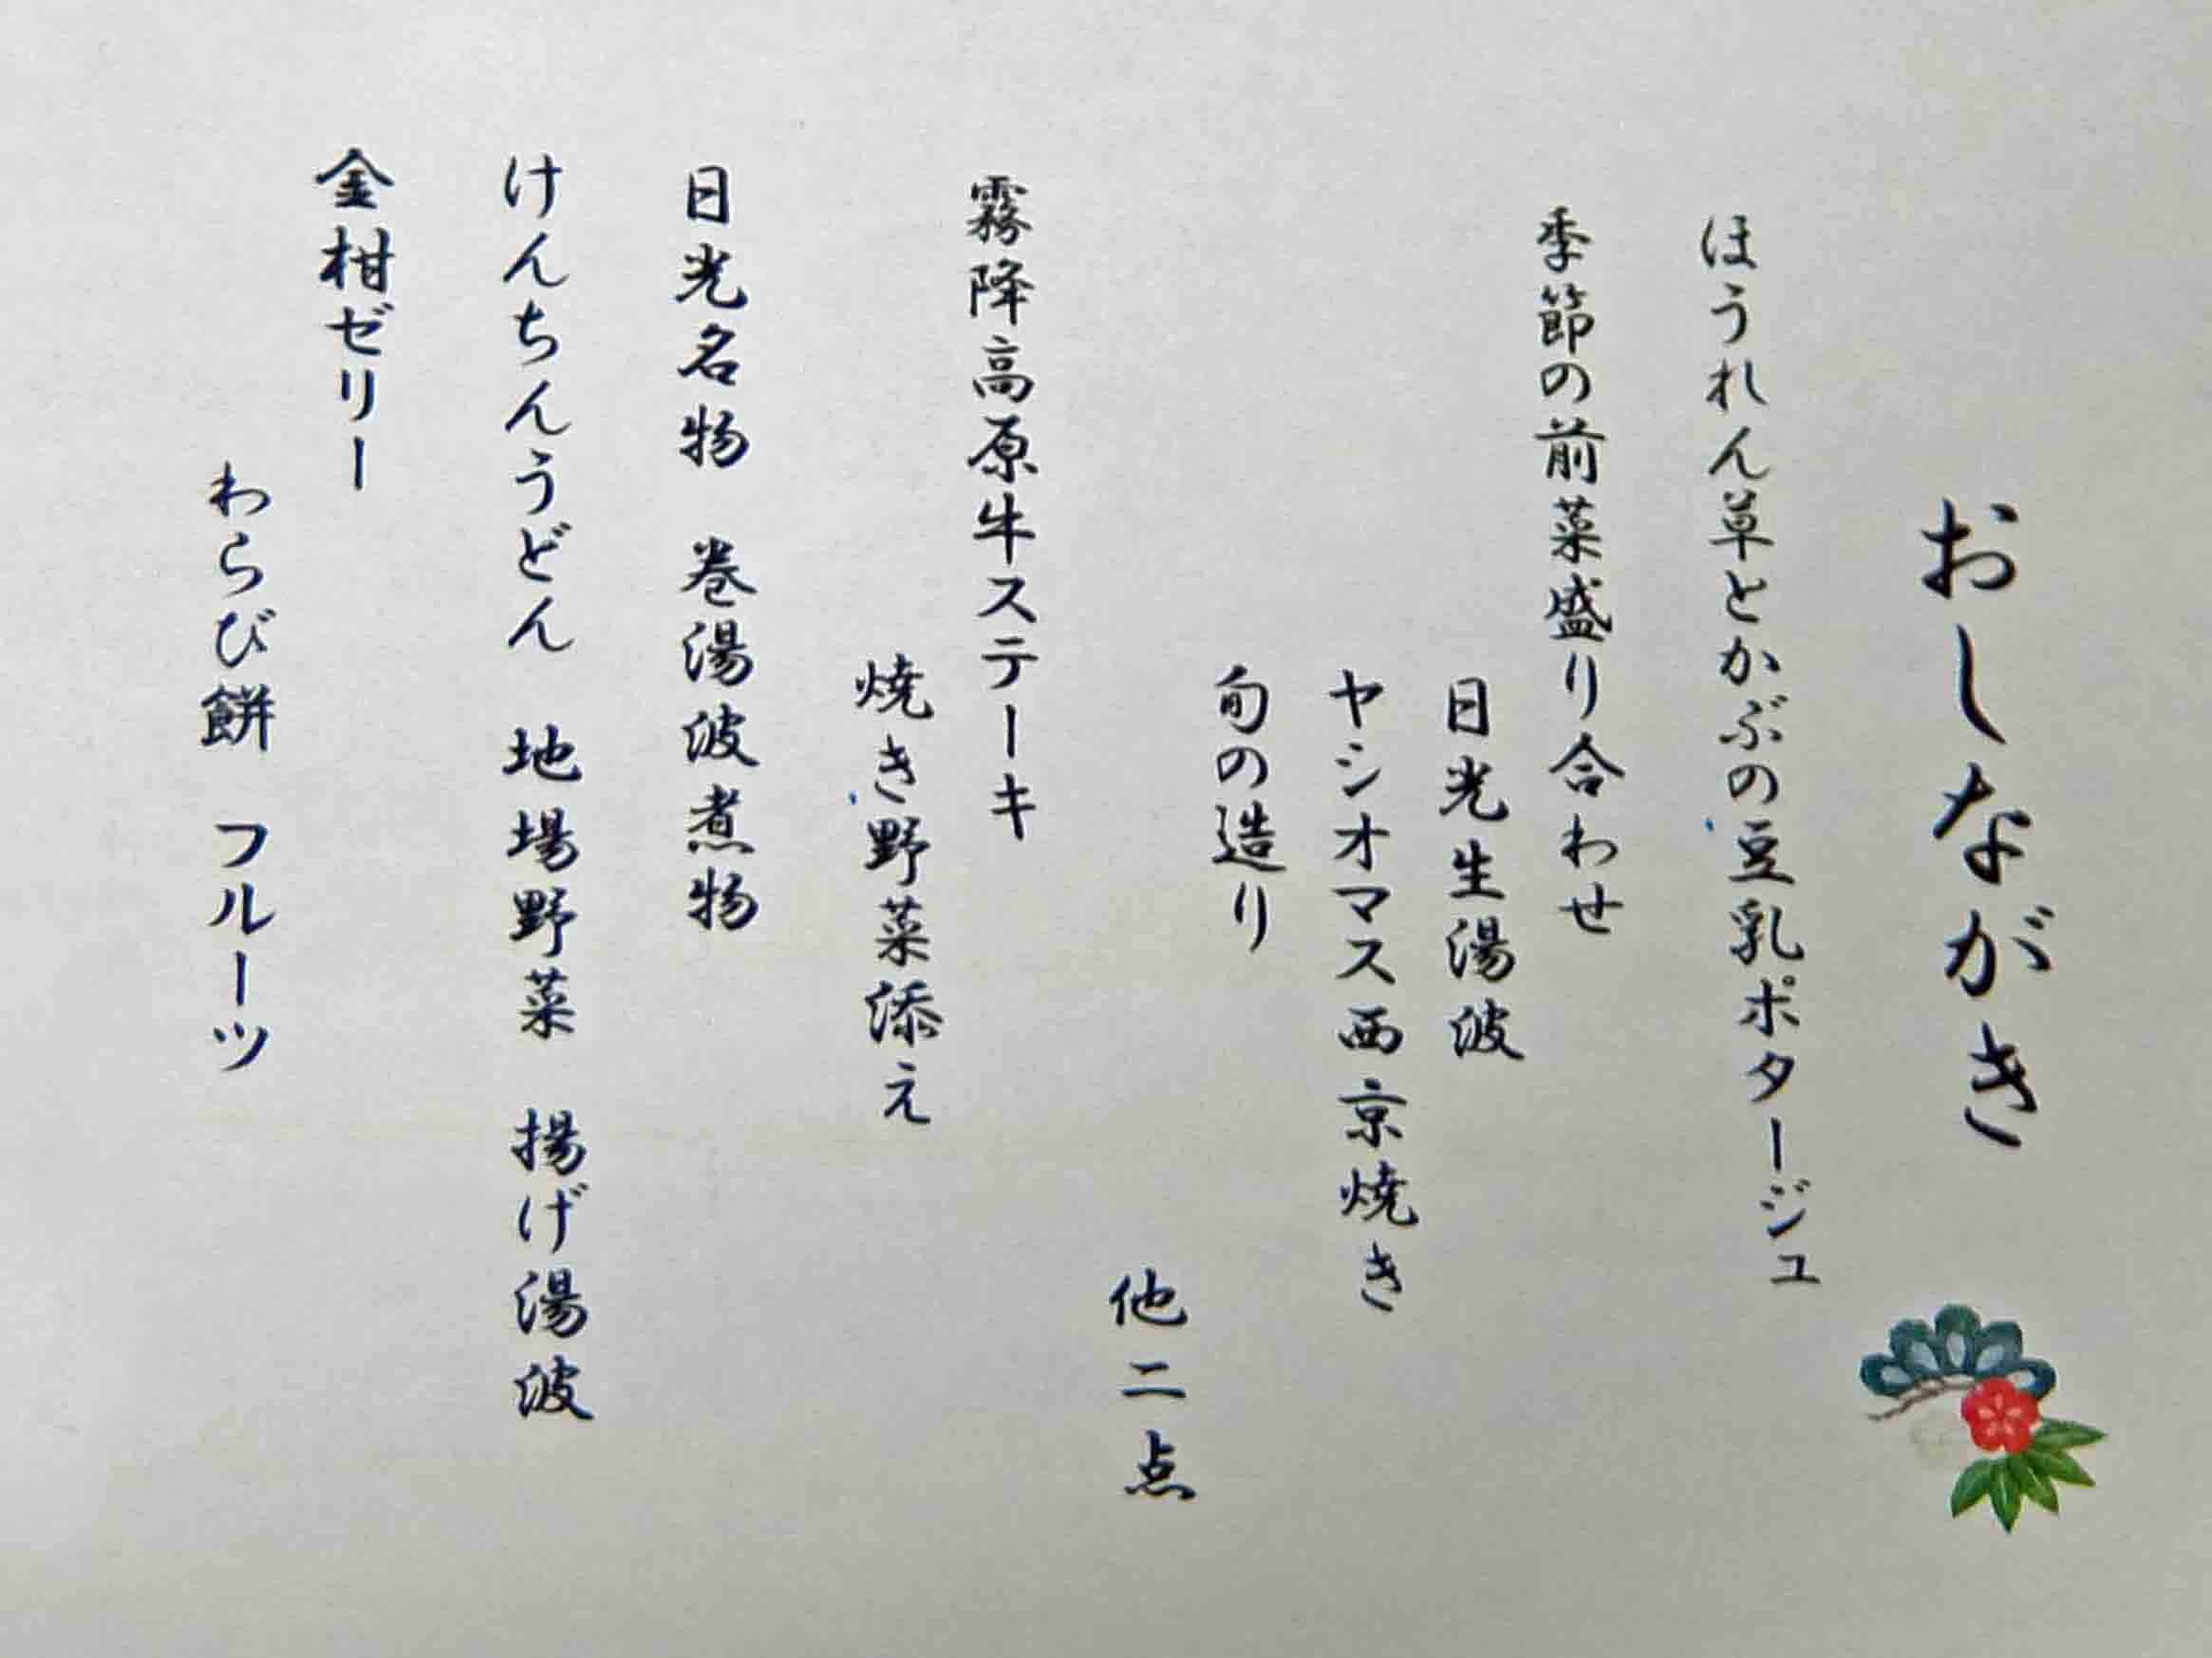 おしながき
ほうれん草とかぶの豆乳ポタージュ
季節の前菜盛り合わせ
日光生湯波
ヤシオマス西京焼き
旬の造り
他二点
霧降高原牛ステーキ
焼き野菜添え
日光名物　巻湯波煮物
けんちんうどん　地場野菜　揚げ湯波
金柑ゼリー
わらび餅　フルーツ